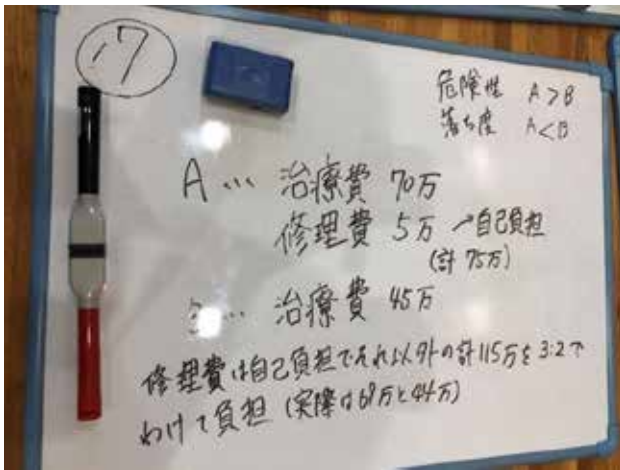 17
危険性 A>B
落ち度 A<B
A… 治療費 70万
修理費 5万 →自己負担
(計 75万)
… 治療費 45万
修理費は自己負担でそれ以外の計115万を3:2で
わけて負担 (実際は69万と44万)